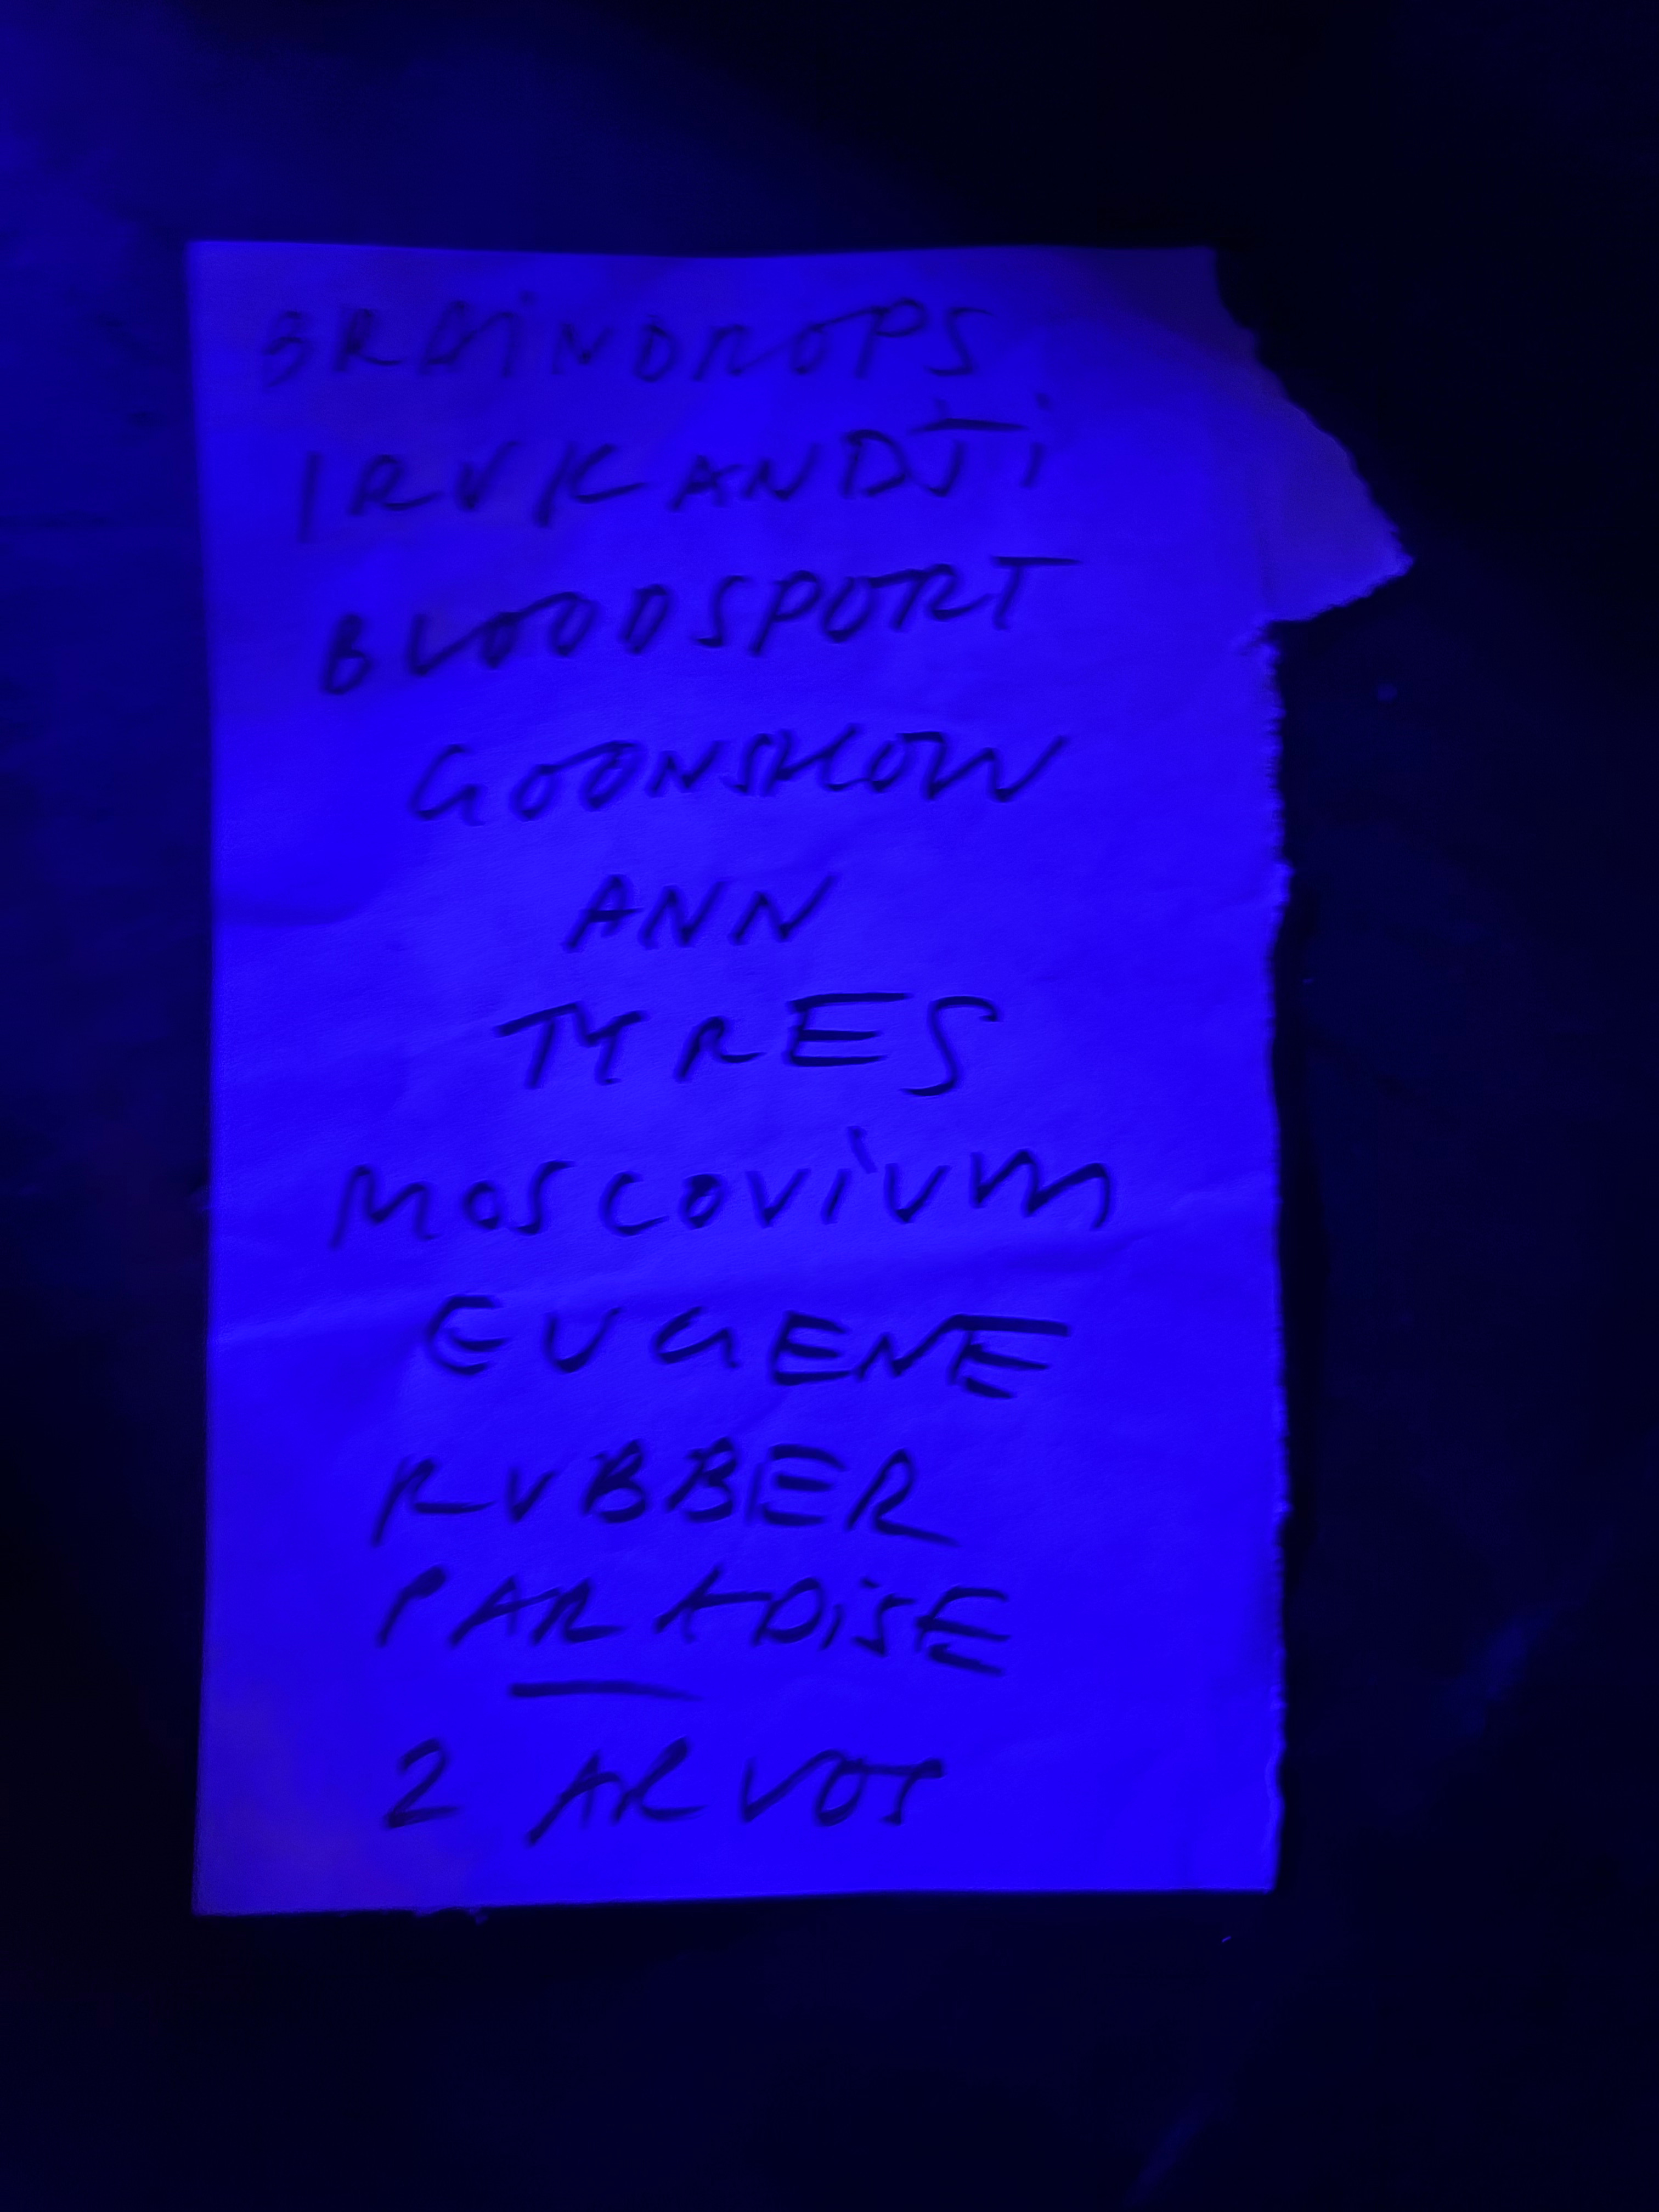 BRAINDROPS
IRUKANDJI
BLOODSPORT
GOONSHOW
ANN
TYRES
MOSCOVIUM
EUGENE
RUBBER
PARADISE
2 ARVOS